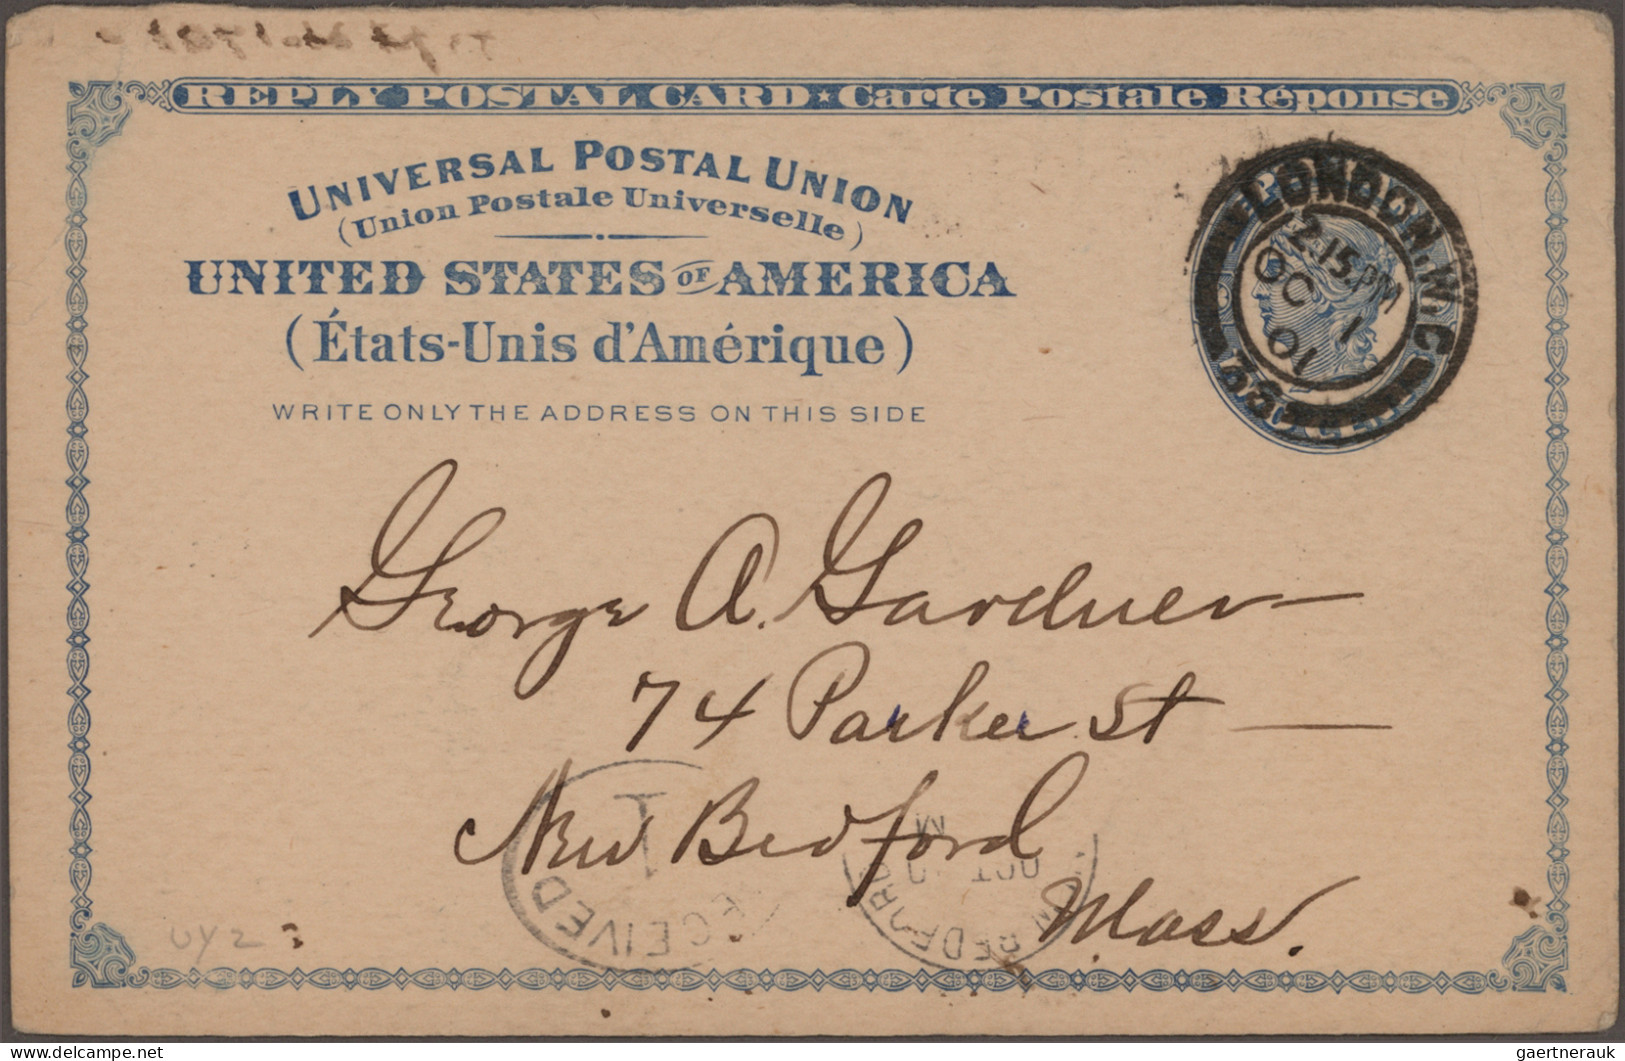 REPLY POSTAL CARD ★ Carte Postale Réponse
UNIVERSAL POSTAL UNION
(Union Postale Universelle)
UNITED STATES OF AMERICA
(États-Unis d'Amérique)
WRITE ONLY THE ADDRESS ON THIS SIDE
LONDON. W.C
2.15.PM
OC 1
01
George A. Gardner
74 Parker St
New Bedford
Mass.
RECEIVED
1
BEDFORD
M
OCT
UY2
gaertnerauk